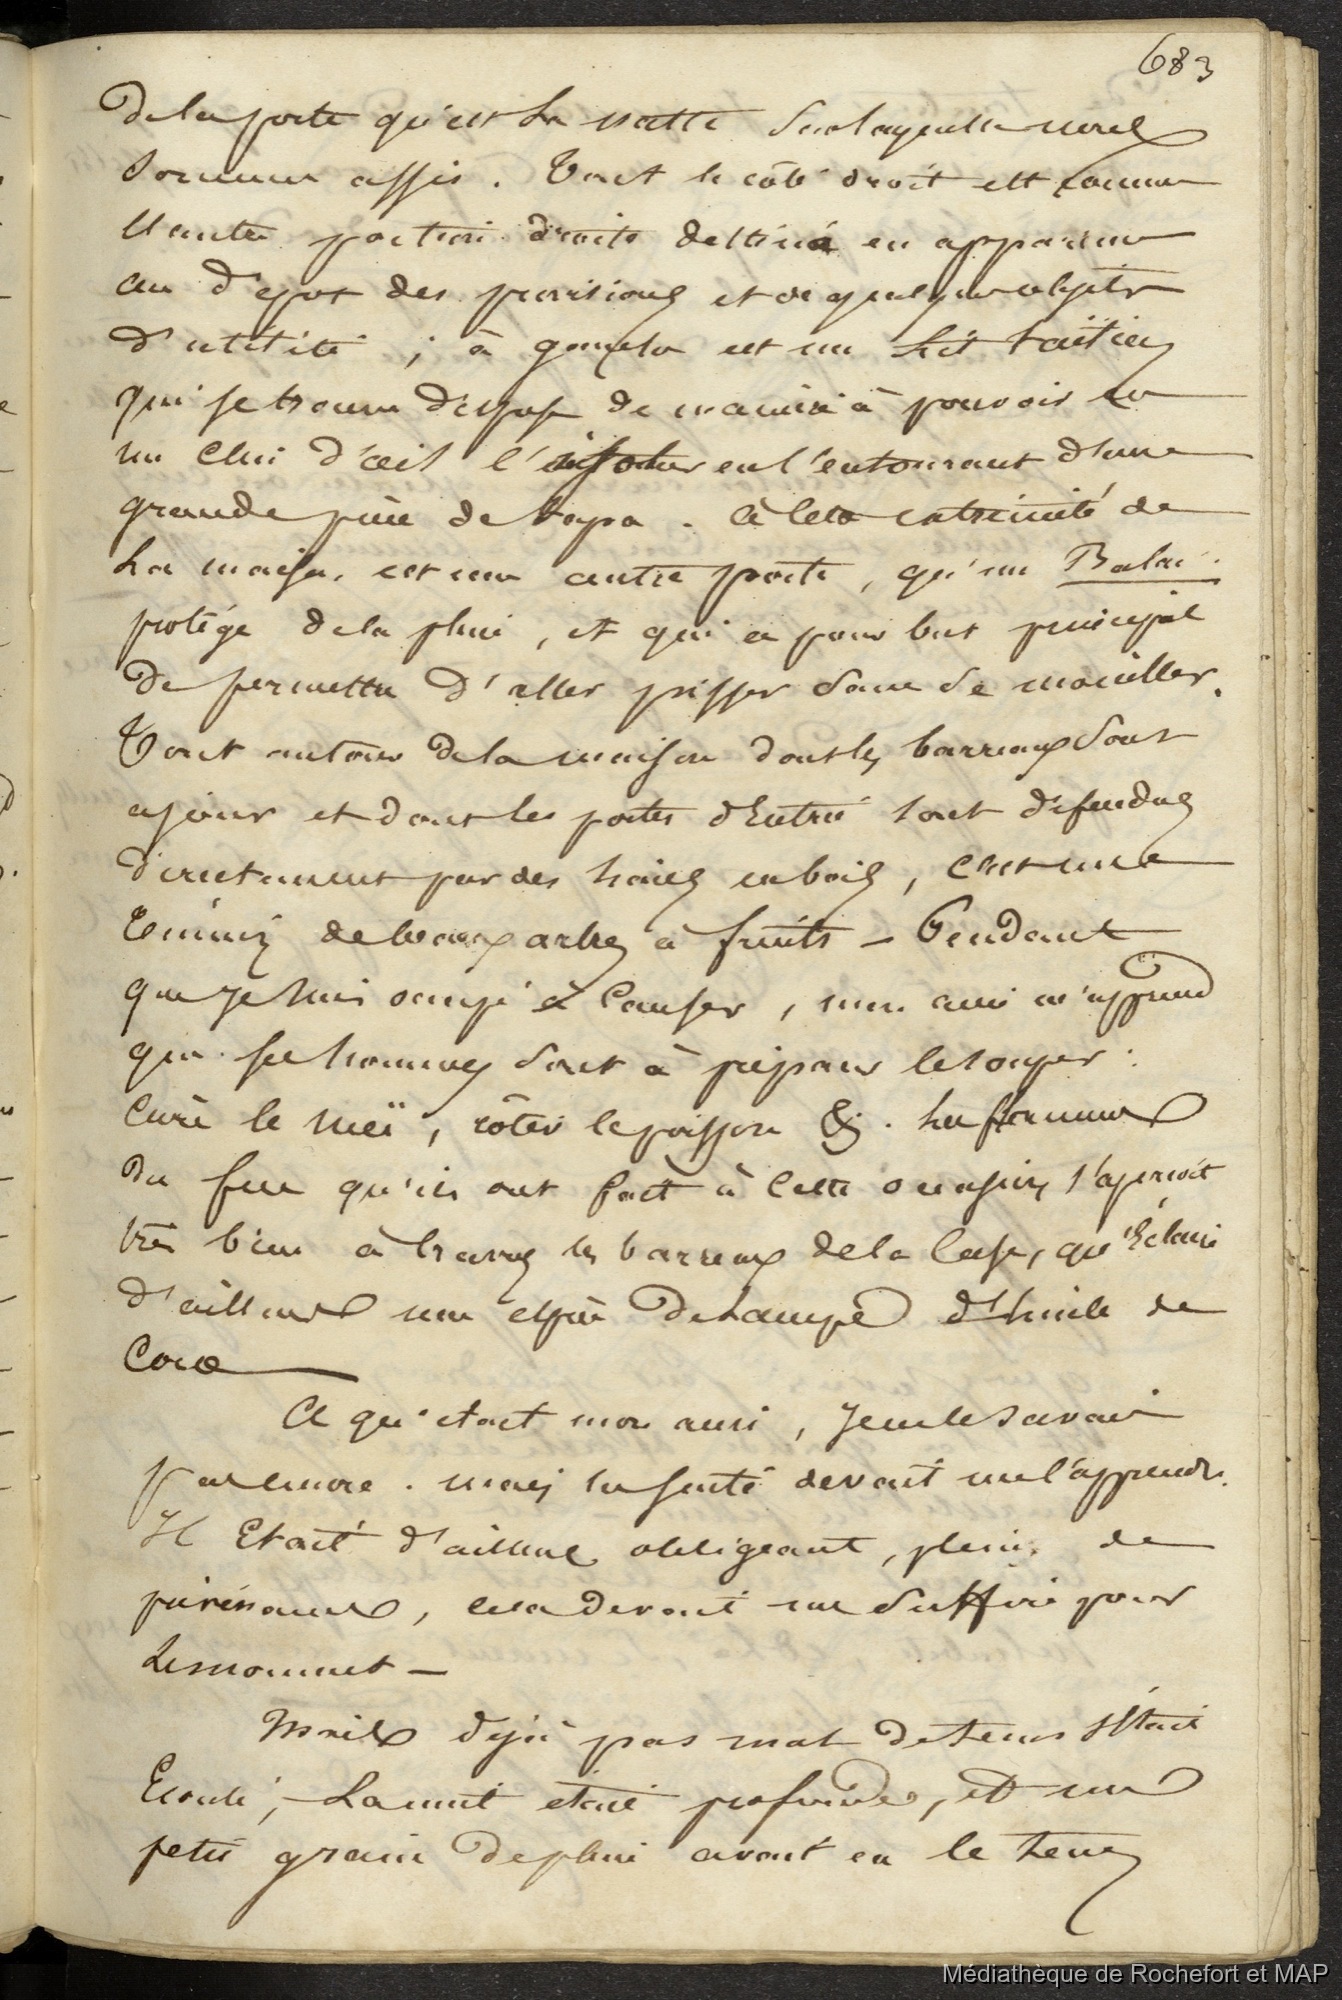 683
de la porte qu'est la natte sur laquelle nous
sommes assis. Tout le côté droit est comme
l'autre portion droite destiné en apparence
au dépot des provisions et de quelques objets
d'utilité ; à gauche est un lit taïtien
qui se trouve disposé de manière à pouvoir en
un clin d'œil l'isoler en l'entourant d'une
grande pièce de tapa. à l'extrémité de
la maison est une autre porte, qu'un Balai
protége de la pluie, et qui a pour but principal
de permettre d'aller pisser sans se mouiller.
Tout autour de la maison dont les barreaux sont
à jour et dont les portes d'Entrée sont défendues
directement par des haies en bois, c'est une
de beaux arbres à fruits – Pendant
que je suis occupé à causer, mon ami m'apprend
que ses hommes sont à préparer le souper :
cuire le meï, rôtir le poisson &. La flamme
du feu qu'ils ont fait à cette occasion s'aperçoit
très bien à travers les barreaux de la case, qu'Eclaire
d'ailleurs une espèce de Lampe d'huile de
Coco
Ce qu'etait mon ami, je ne le savais
pas encore. mais la suite devait me l'apprendre.
Il Etait d'ailleurs obligeant, plein de
prévenances, cela devait me suffire pour
le moment –
Mais déjà pas mal de tems s'Etait
Ecoulé, La nuit était profonde, et un
petit grain de pluie avait eu le tems
Médiathèque de Rochefort et MAP